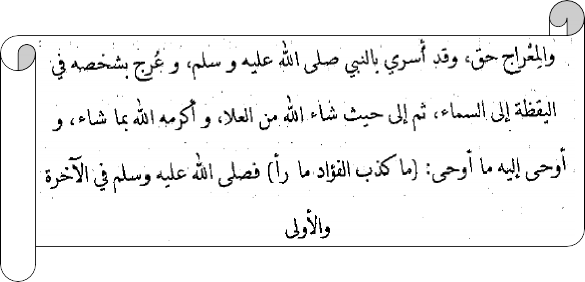 والمِعْراج حق، وقد أسري بالنبي صلى الله عليه و سلم، و عُرِج بشخصه في
اليقظة إلى السماء، ثم إلى حيث شاء الله من العلا، و أكرمه الله بما شاء، و
أوحى إليه ما أوحى: (ما كذب الفؤاد ما رأ) فصلى الله عليه وسلم في الآخرة
والأولى